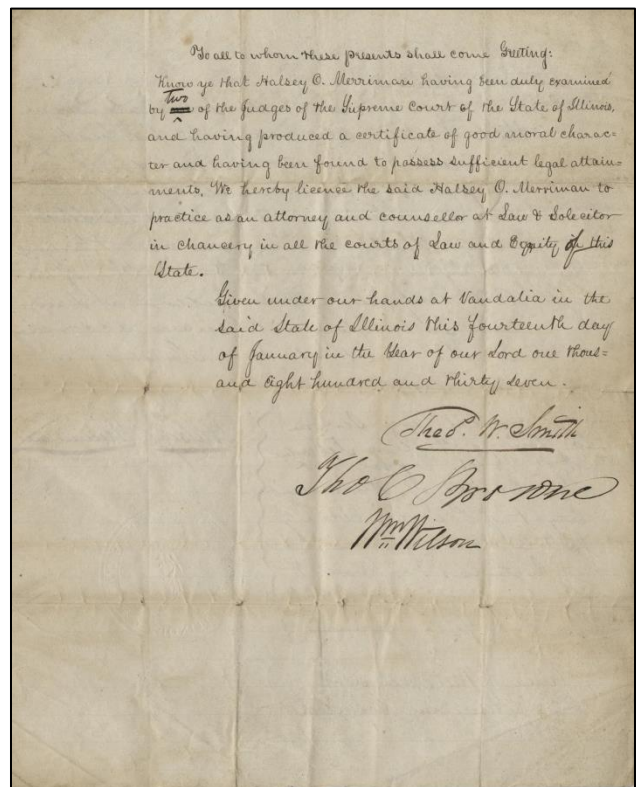 To all to whom these presents shall come Greeting:
Know ye that Halsey O. Merriman having been duly examined
two
by of the Judges of the Supreme Court of the State of Illinois,
and having produced a certificate of good moral charac-
ter and having been found to possess sufficient legal attain-
ments, We hereby licence the said Halsey O. Merriman to
practice as an attorney and counsellor at Law & Solicitor
in chancery in all the courts of Law and Equity of this
State.
Given under our hands at Vandalia in the
said State of Illinois this fourteenth day
of January in the Year of our Lord one thous=
and eight hundred and thirty seven.
Theo. W. Smith
Tho C Browne
Wm Wilson